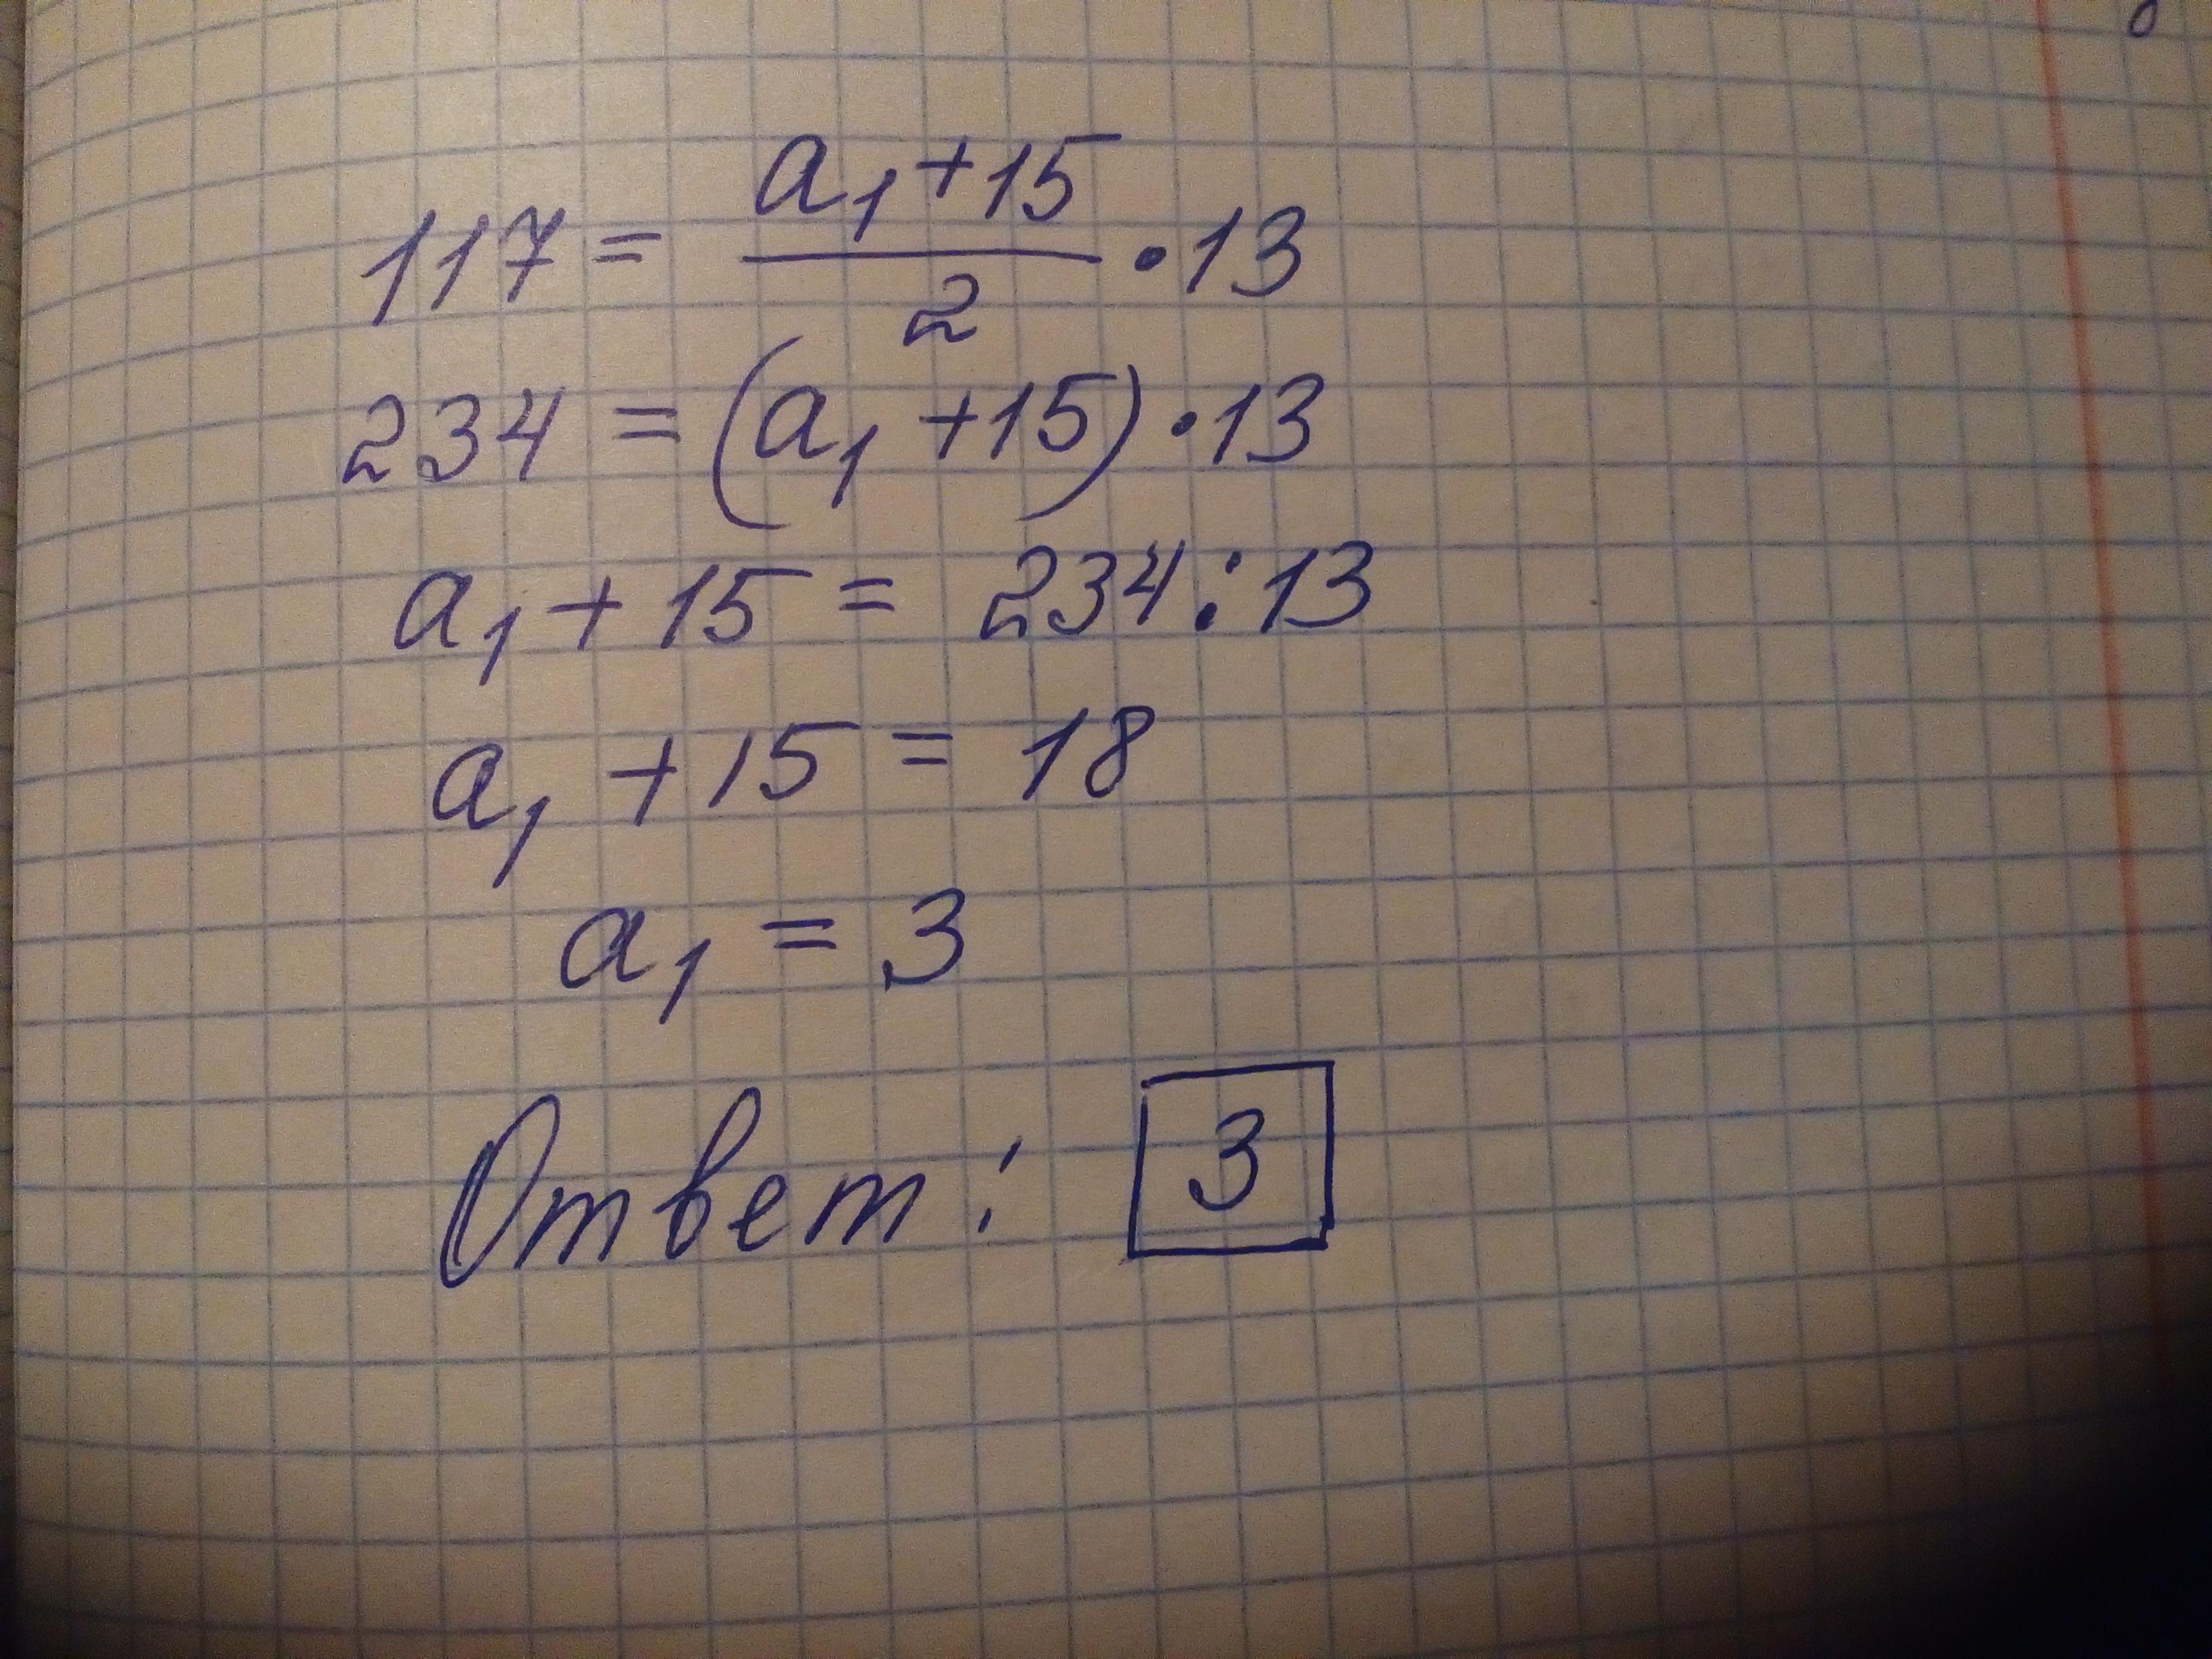 117 = (a₁+15)/2 · 13
234 = (a₁ +15) · 13
a₁ + 15 = 234 : 13
a₁ + 15 = 18
a₁ = 3
Ответ: 3